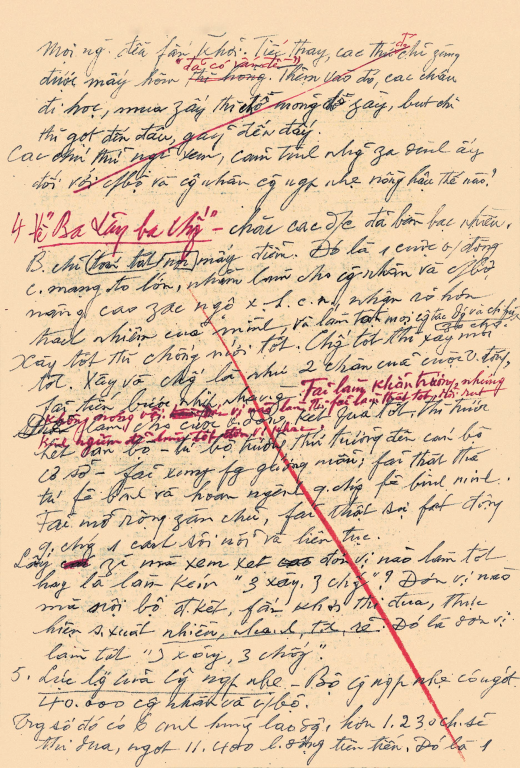 Mọi ng. đều fấn khởi. Tiếc thay, các thứ đó chỉ zùng
"đã có vấn đề"
được mấy hôm thì hỏng. Thêm vào đó, các cháu
đi học, mua zấy thì chỗ mỏng chỗ zầy, bút chì
thì gọt đến đâu, gãy đến đấy.
Các chú thử nghĩ xem, cảm tình nhg za đình ấy
đối với c/bộ và cg nhân cg ngh nhẹ nồng hậu thế nào?
4- Về "Ba xây ba chg" - chắc các đ/c đã bàn bạc nhiều.
B. chỉ tóm tắt nói mấy điểm. Đó là 1 cuộc v/động
c. mạng to lớn, nhằm làm cho cg nhân và c/bộ
nâng cao zác ngộ x.h.c.n, nhận rõ hơn
trách nhiệm của mình, và làm tốt mọi cg tác
Xây tốt thì chống mới tốt. Chg tốt thì xây mới
tốt. Xây và chg là như 2 chân của cuộc v. động,
fải tiến bước nhịp nhàng.
Fải làm khẩn trương, nhưng
không nóng vội. làm thì fải làm thật tốt, rồi rút
kinh nghiệm để làm tốt đơn vị khác.
làm cho cuộc v. động kết quả tốt, thì trước
hết cán bộ - từ bộ trưởng, thứ trưởng đến cán bộ
cơ sở - fải xung fg gương mẫu; fải thật thà
tự fê bình và hoan nghênh q. chg fê bình mình.
Fải mở rộng zân chủ, fải thật sự fát động
q. chg 1 cách sôi nổi và liên tục.
Lấy gì mà xem xét đơn vị nào làm tốt
hay là làm kém "3 xây, 3 chg"? Đơn vị nào
mà nội bộ đ. kết, fấn khởi thi đua, thực
hiện s. xuất nhiều, nhanh, tốt, rẻ. Đó là đơn vị
làm tốt "3 xây, 3 chống".
5. Lực lg của Cg ngh nhẹ - Bộ cg ngh nhẹ có ngót
40.000 cg nhân và c/bộ.
Trg số đó có 6 anh hùng lao độg, hơn 1.230 ch. sĩ
thi đua, ngót 11.400 l. động tiên tiến. Đó là 1